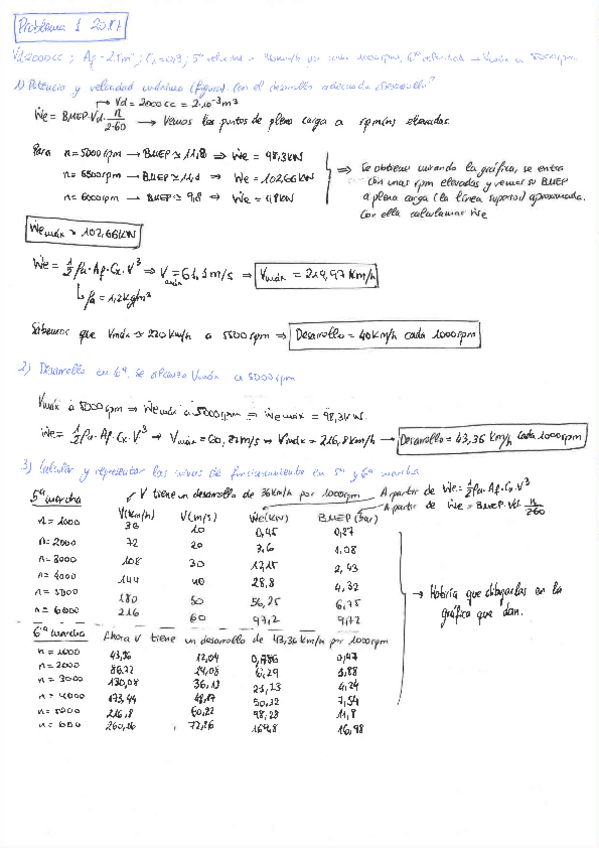 Problema 1 2017
Vd=2000cc ; Af=2.1m² ; Cx=0.3 ; 5ª velocidad → 36km/h por cada 1000rpm, 6ª velocidad → Vmáx a 5000rpm
1) Potencia y velocidad máxima (figura). Con el desarrollo adecuado ¿Desarrollo?
↳ Vd = 2000cc = 2·10⁻³m³
Ẇe = BMEP·Vd· n/2·60 → Vemos los puntos de plena carga a rpm/ns elevadas.
Para n=5000rpm → BMEP≃11,8 ⇒ Ẇe = 98,3KW
n=5500rpm → BMEP≃11,2 ⇒ Ẇe = 102,66KW
n=6000rpm → BMEP≃9,8 ⇒ Ẇe =
⇒ Se obtiene mirando la gráfica, se entra
con unas rpm elevadas y vemos su BMEP
a plena carga (la línea superior) aproximada.
Con ella calculamos Ẇe
Ẇemáx ≃ 102,66KW
Ẇe = 1/2 ρa·Af·Cx·V³ ⇒ Vmáx = 61,1m/s ⇒ Vmáx = 219,97 Km/h
↳ ρa = 1,2kg/m³
Sabemos que Vmáx ≃ 220Km/h a 5500rpm ⇒ Desarrollo = 40Km/h cada 1000rpm
2) Desarrollo en 6ª. se alcanza Vmáx a 5000rpm
Vmáx a 5000rpm ⇒ Ẇemáx a 5000rpm ⇒ Ẇemáx = 98,3KW.
Ẇe = 1/2 ρa·Af·Cx·V³ → Vmáx = 60,22m/s → Vmáx = 216,8Km/h → Desarrollo = 43,36 Km/h cada 1000rpm
3) Calcular y representar las curvas de funcionamiento en 5ª y 6ª marcha
5ª marcha V tiene un desarrollo de 36Km/h por 1000rpm A partir de Ẇe=1/2ρa·Af·Cx·V³
A partir de Ẇe = BMEP·Vd· n/2·60
V(Km/h) V(m/s) Ẇe(KW) BMEP(bar)
n = 1000 36 10 0,45 0,27
n = 2000 72 20 3,6 1,08
n = 3000 108 30 12,15 2,43
n = 4000 144 40 28,8 4,32
n = 5000 180 50 56,25 6,75
n = 6000 216 60 97,2 9,72
→ Habría que dibujarlas en la
gráfica que dan.
6ª marcha Ahora V tiene un desarrollo de 43,36 Km/h por 1000rpm
n = 1000 43,36 12,04 0,786 0,47
n = 2000 86,72 24,08 6,29 1,88
n = 3000 130,08 36,13 21,23 4,24
n = 4000 173,44 48,17 50,32 7,54
n = 5000 216,8 60,22 98,28 11,8
n = 6000 260,16 72,26 169,8 16,98